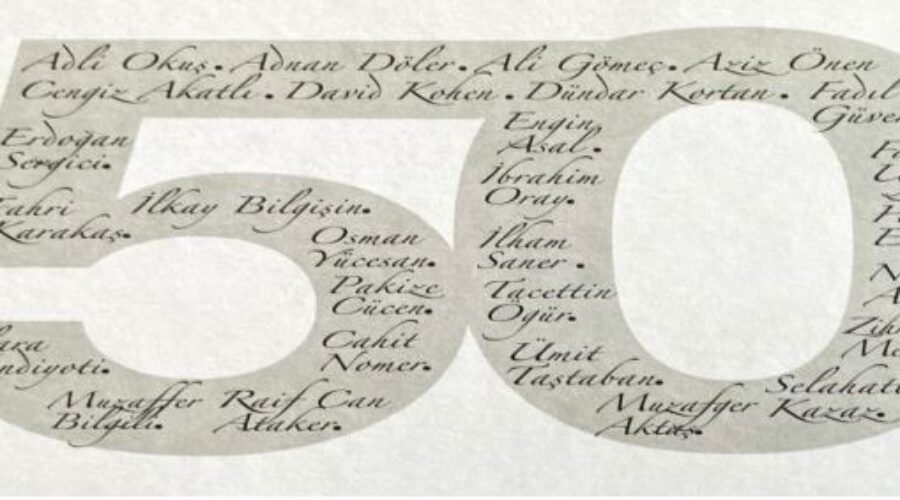 50
Adli Okuş. Adnan Döler. Ali Gömeç. Aziz Önen
Cengiz Akatlı. David Kohen. Dündar Kortan. Fadıl
Güve
Erdoğan
Sergici.
Fahri
Karakaş.
İlkay Bilgişin.
Osman
Yücesan.
Pakize
Cücen.
Cahit
Nomer.
lara
ndiyoti.
Muzaffer
Bilgili.
Raif Can
Ataker.
Engin
Asal.
İbrahim
Oray.
İlham
Saner.
Tacettin
Ögür.
Ümit
Taştaban.
Muzafger
Aktaş.
Selahatt
Kazaz.
Zihn